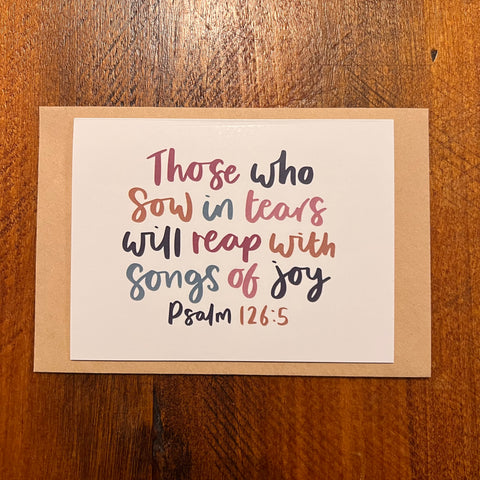 Those who
sow in tears
will reap with
songs of joy
Psalm 126:5